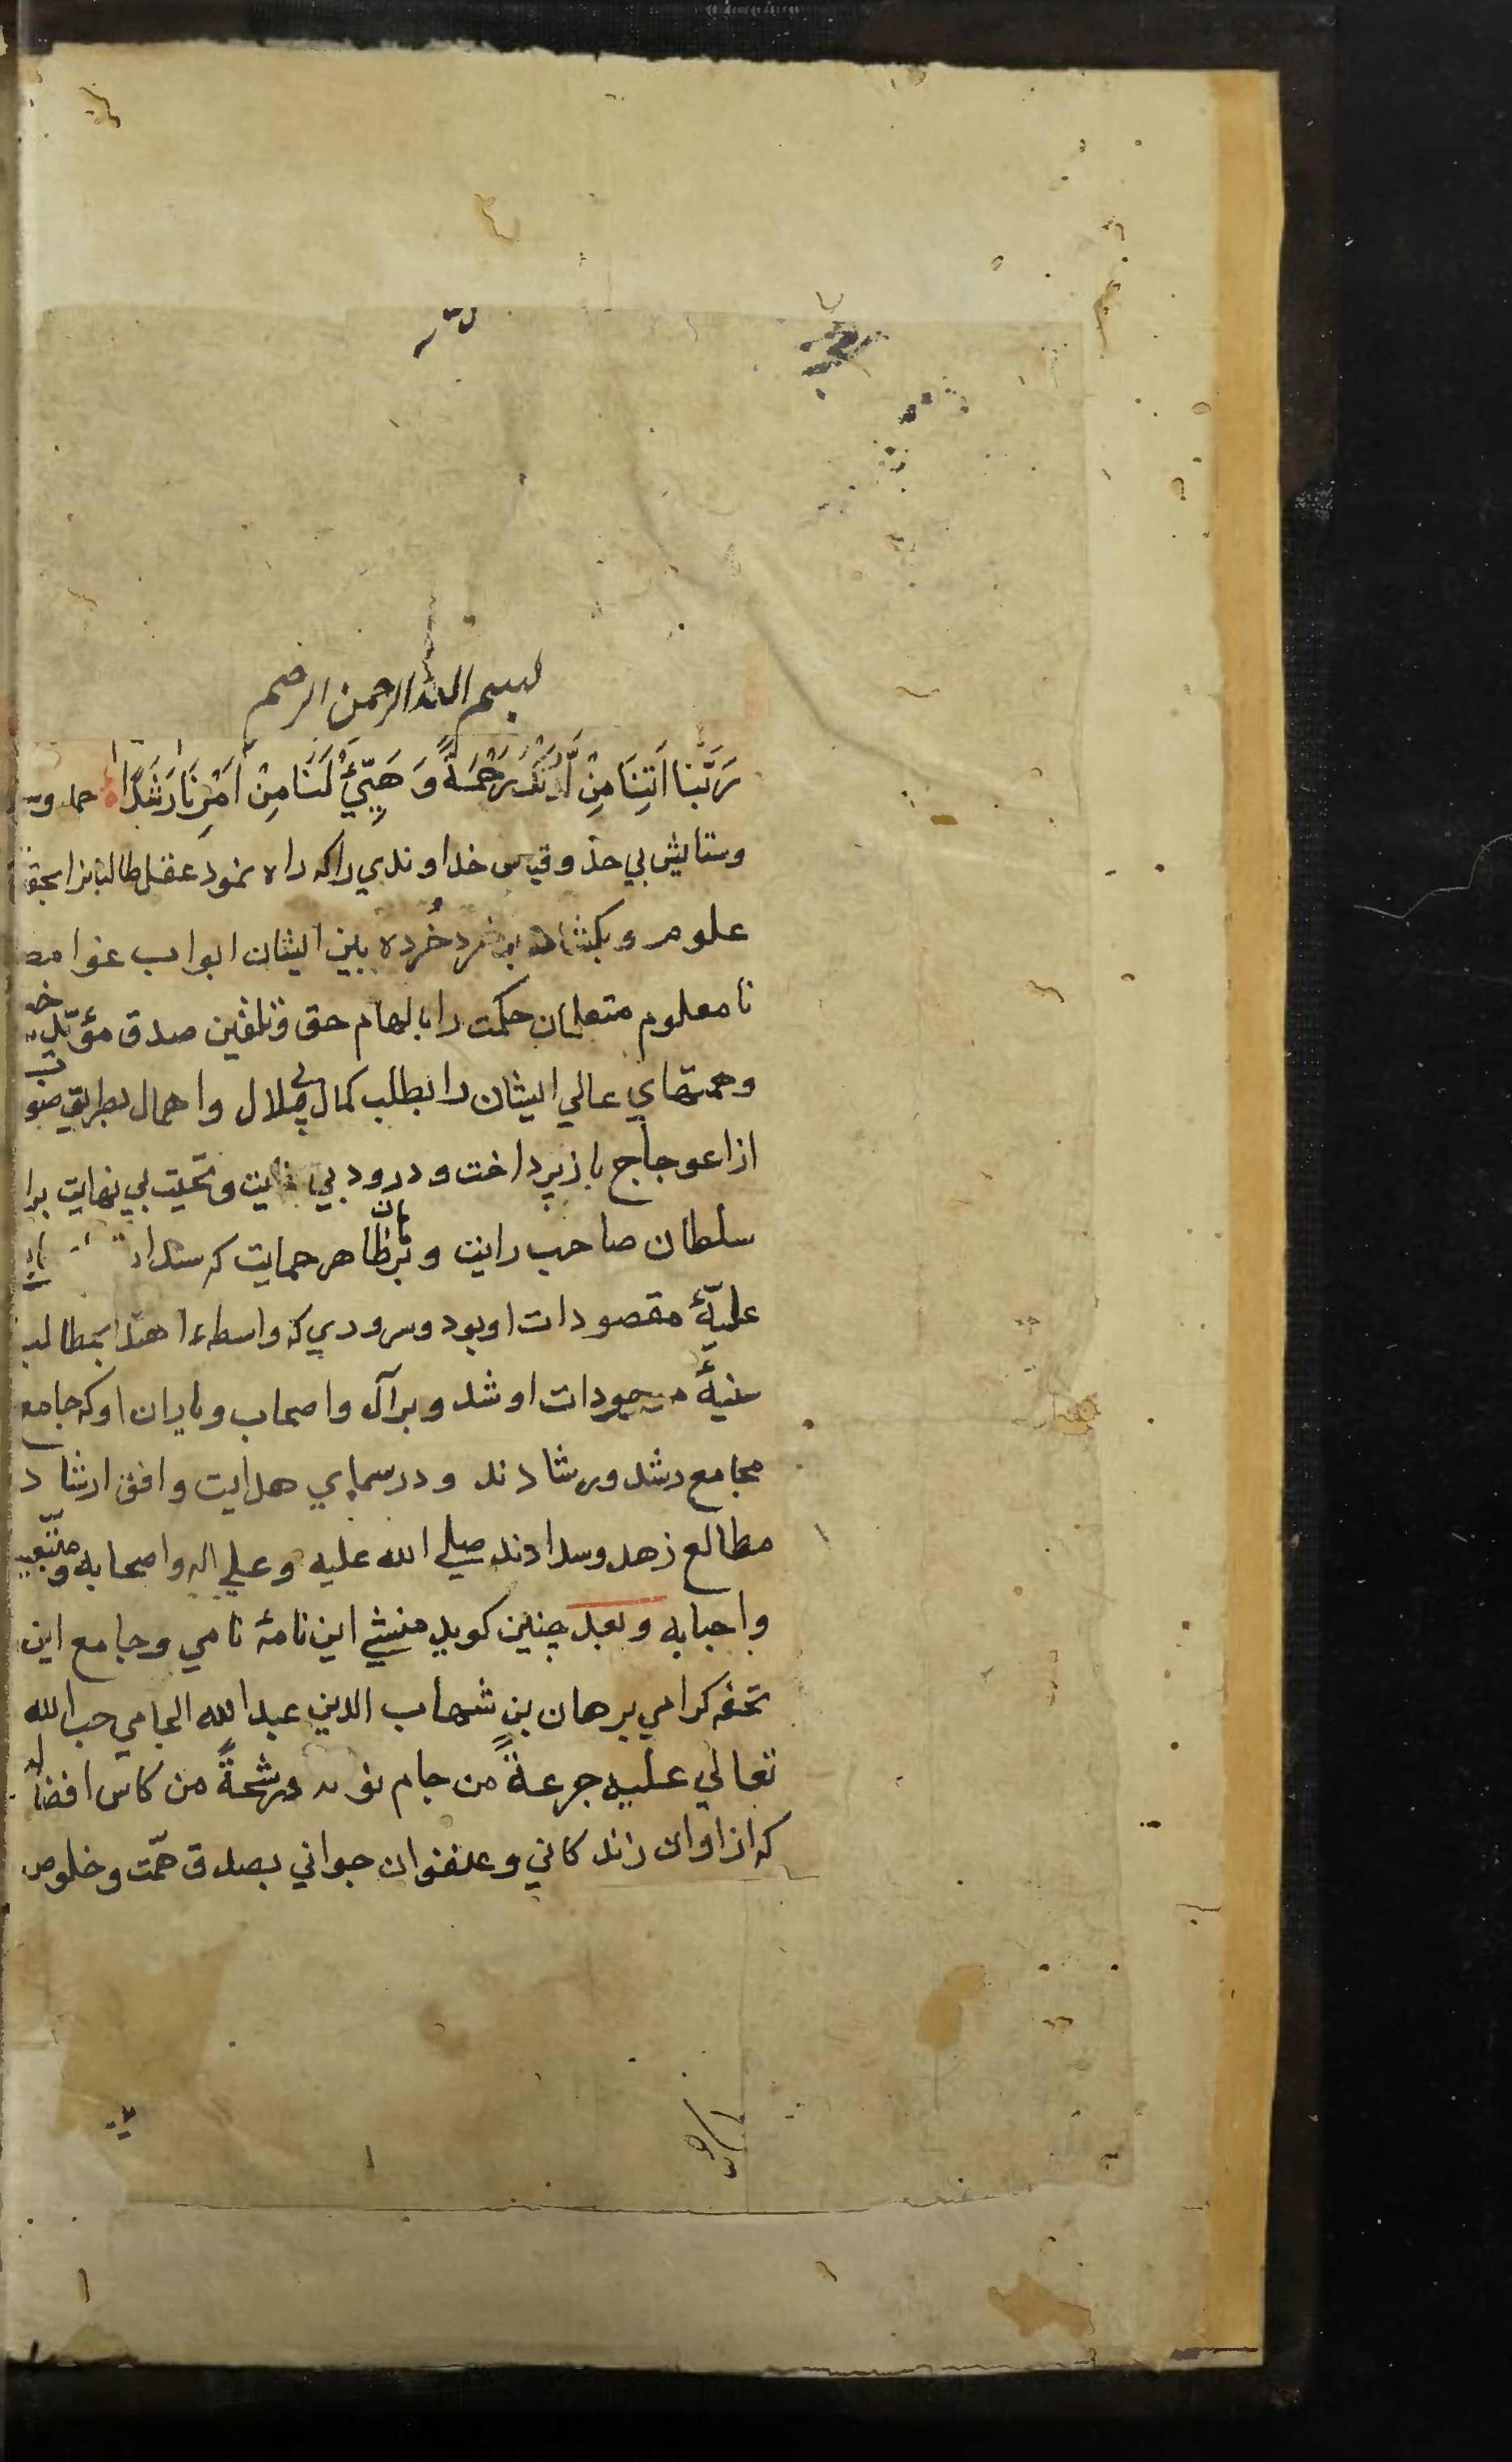 بسم الله الرحمن الرحیم
رَبَّنَا اٰتِنَا مِنْ لَّدُنْكَ رَحْمَةً وَ هَيِّئْ لَنَا مِنْ اَمْرِنَا رَشَدًا حمد و
وستایش بي حدّ و قیاس خداوندي راکه راه نمود عقل طالبانرا
علوم و بکشاد بر خرد خُرده بین ایشان ابواب غوامض
نا معلوم متعلمان حکمت را بالهام حق و تلقین صدق مؤیّد
وهمتهاي عالي ایشان را بطلب کمال بي ملال و اهمال بطریق صواب
از اعوجاج باز پرداخت و درود بي غایت و تحیّت بي نهایت برا
سلطان صاحب رایت و برهان ظاهر حمایت که
علیّهٔ مقصودات او بود و سروري که واسطهء اهتدا بمطالب
سنیهٔ او شد و بر آل و اصحاب و یاران او که جامع
مجامع رشد و رشادند و در سماي هدایت و افق ارشاد
مطالع زهد و سدادند صلي الله علیه و علي اله و اصحابه و متّبعیه
و احبابه و بعد چنین کوید منشي این نامهٔ نامي و جامع این
تحفه کرامي برهان بن شهاب الدین عبد الله الجامي صب الله
تعالي علیه جرعةً من جام نواله و رشحةً من کاس افضاله
که از اوان زندکاني و عنفوان جواني بصدق همّت و خلوص